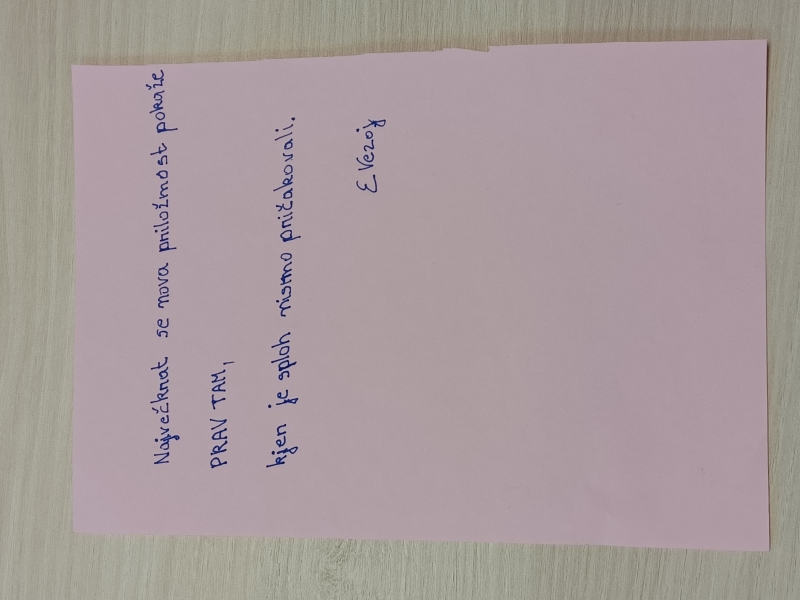 Največkrat se nova priložnost pokaže
PRAV TAM,
kjer je sploh nismo pričakovali.
E Vezoj